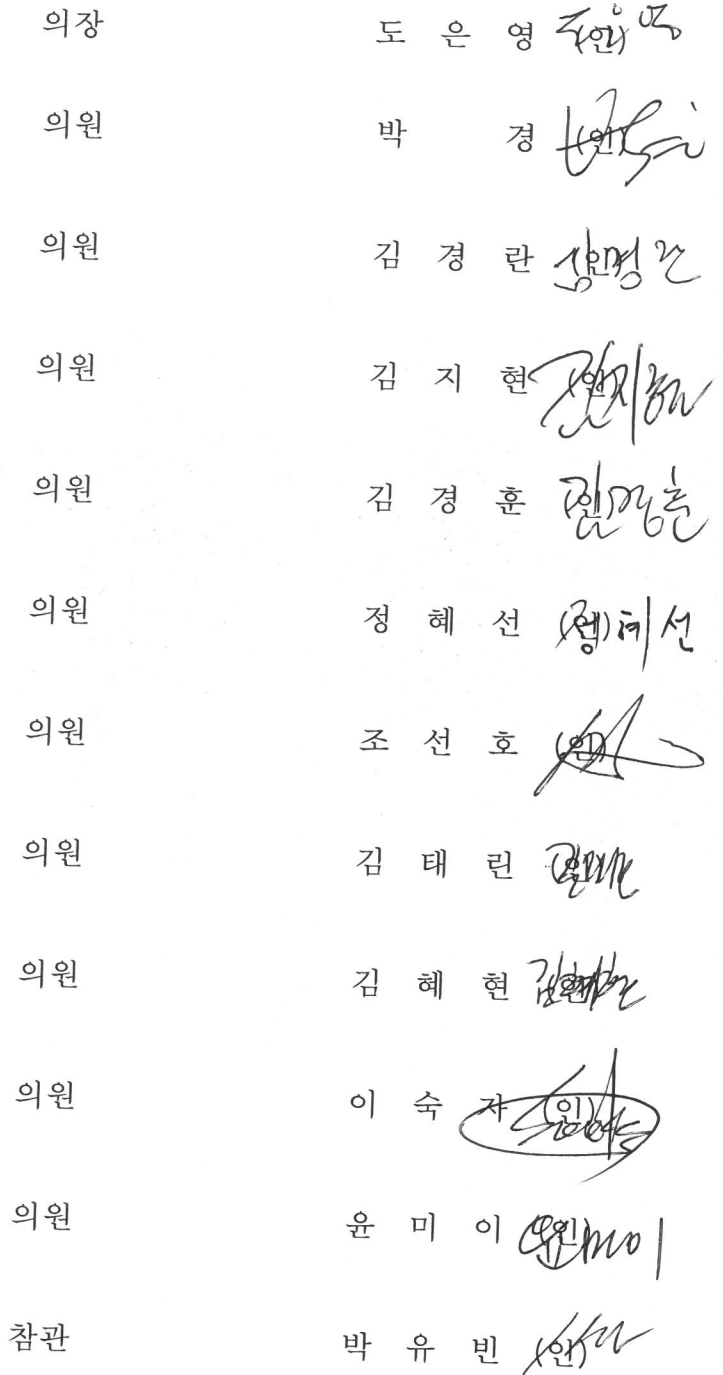 의장 도 은 영 (인)
의원 박 경 (인)
의원 김 경 란 (인)
의원 김 지 현 (인)
의원 김 경 훈 (인)
의원 정 혜 선 (인) 정혜선
의원 조 선 호 (인)
의원 김 태 린 (인)
의원 김 혜 현 (인)
의원 이 숙 자 (인)
의원 윤 미 이 (인)
참관 박 유 빈 (인)